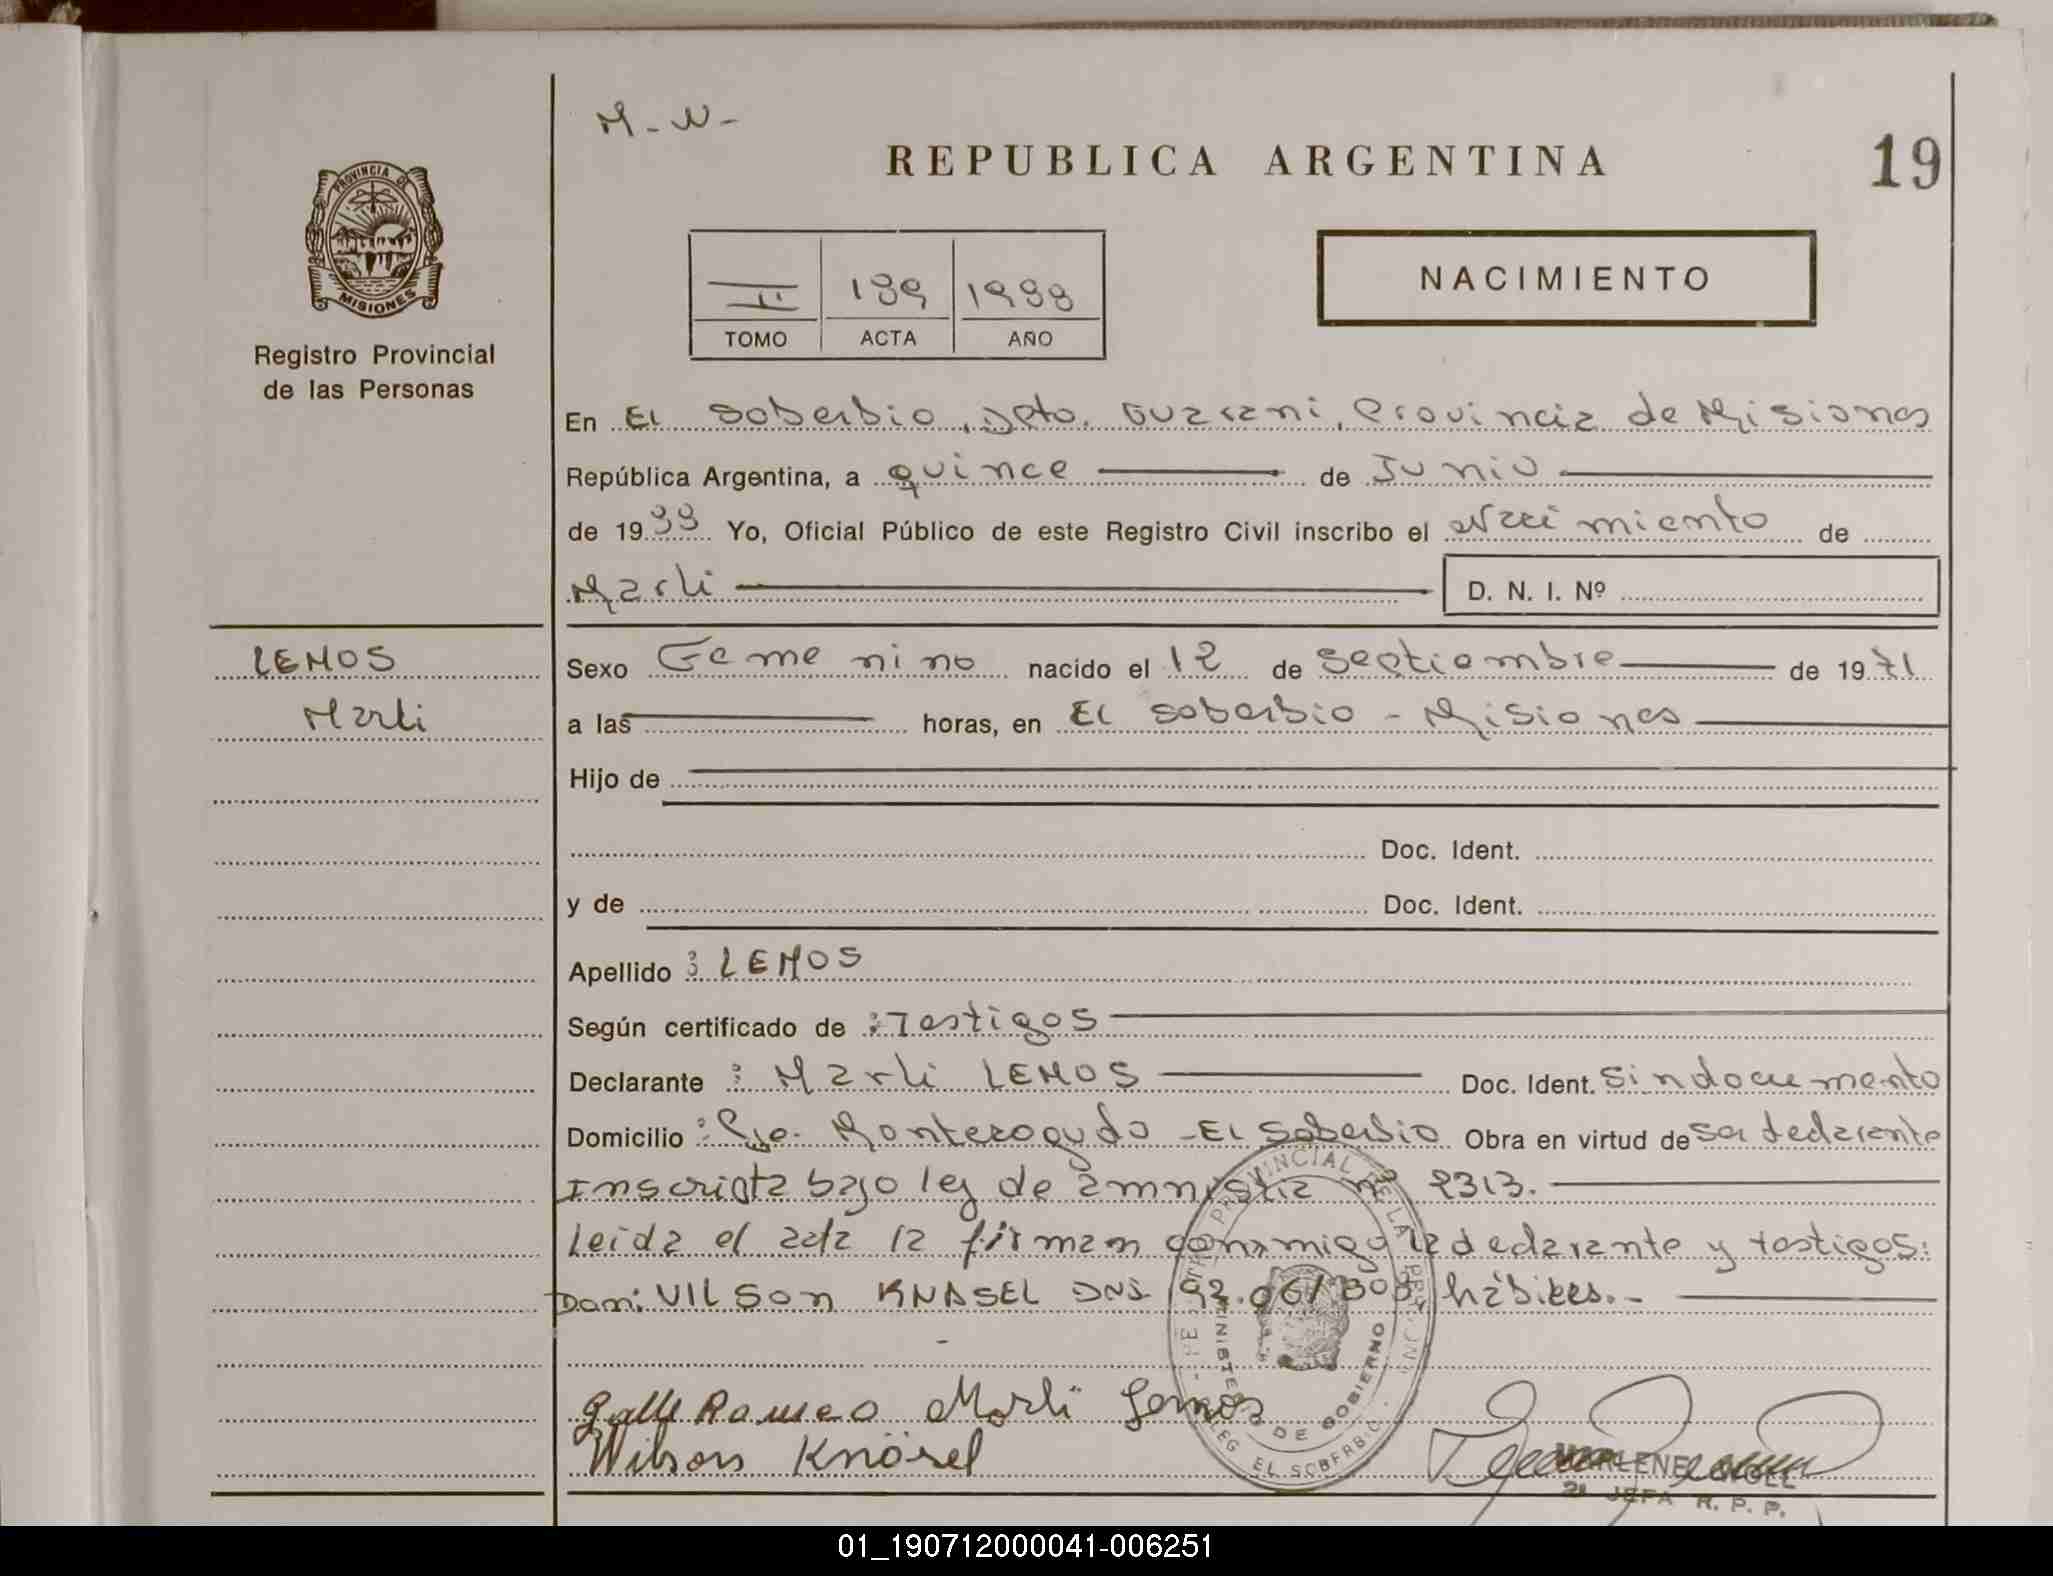 M-N-
REPUBLICA ARGENTINA
19
PROVINCIA DE
MISIONES
Registro Provincial
de las Personas
II 189 1988
TOMO ACTA AÑO
NACIMIENTO
En El Soberbio, Dpto. Guarani, Provincia de Misiones
República Argentina, a quince de Junio
de 1988 Yo, Oficial Público de este Registro Civil inscribo el Nacimiento de
Marli D. N. I. Nº
LEMOS
Marli
Sexo Femenino nacido el 12 de Septiembre de 1971
a las horas, en El Soberbio - Misiones
Hijo de
Doc. Ident.
y de Doc. Ident.
Apellido : LEMOS
Según certificado de : Testigos
Declarante : Marli LEMOS Doc. Ident. Sin documento
Domicilio : Pje. Monteagudo - El Soberbio Obra en virtud de ser declarante
Inscripta bajo ley de amnistia nº 2313.
Leida el acta la firman conmigo la declarante y testigos:
VILSON KNASEL DNI hábiles.-
Romeo Marli Lemos
Wilson Knösel
MINISTERIO DE GOBIERNO
DELEG EL SOBERBIO
JEFA R. P. P.
01_190712000041-006251